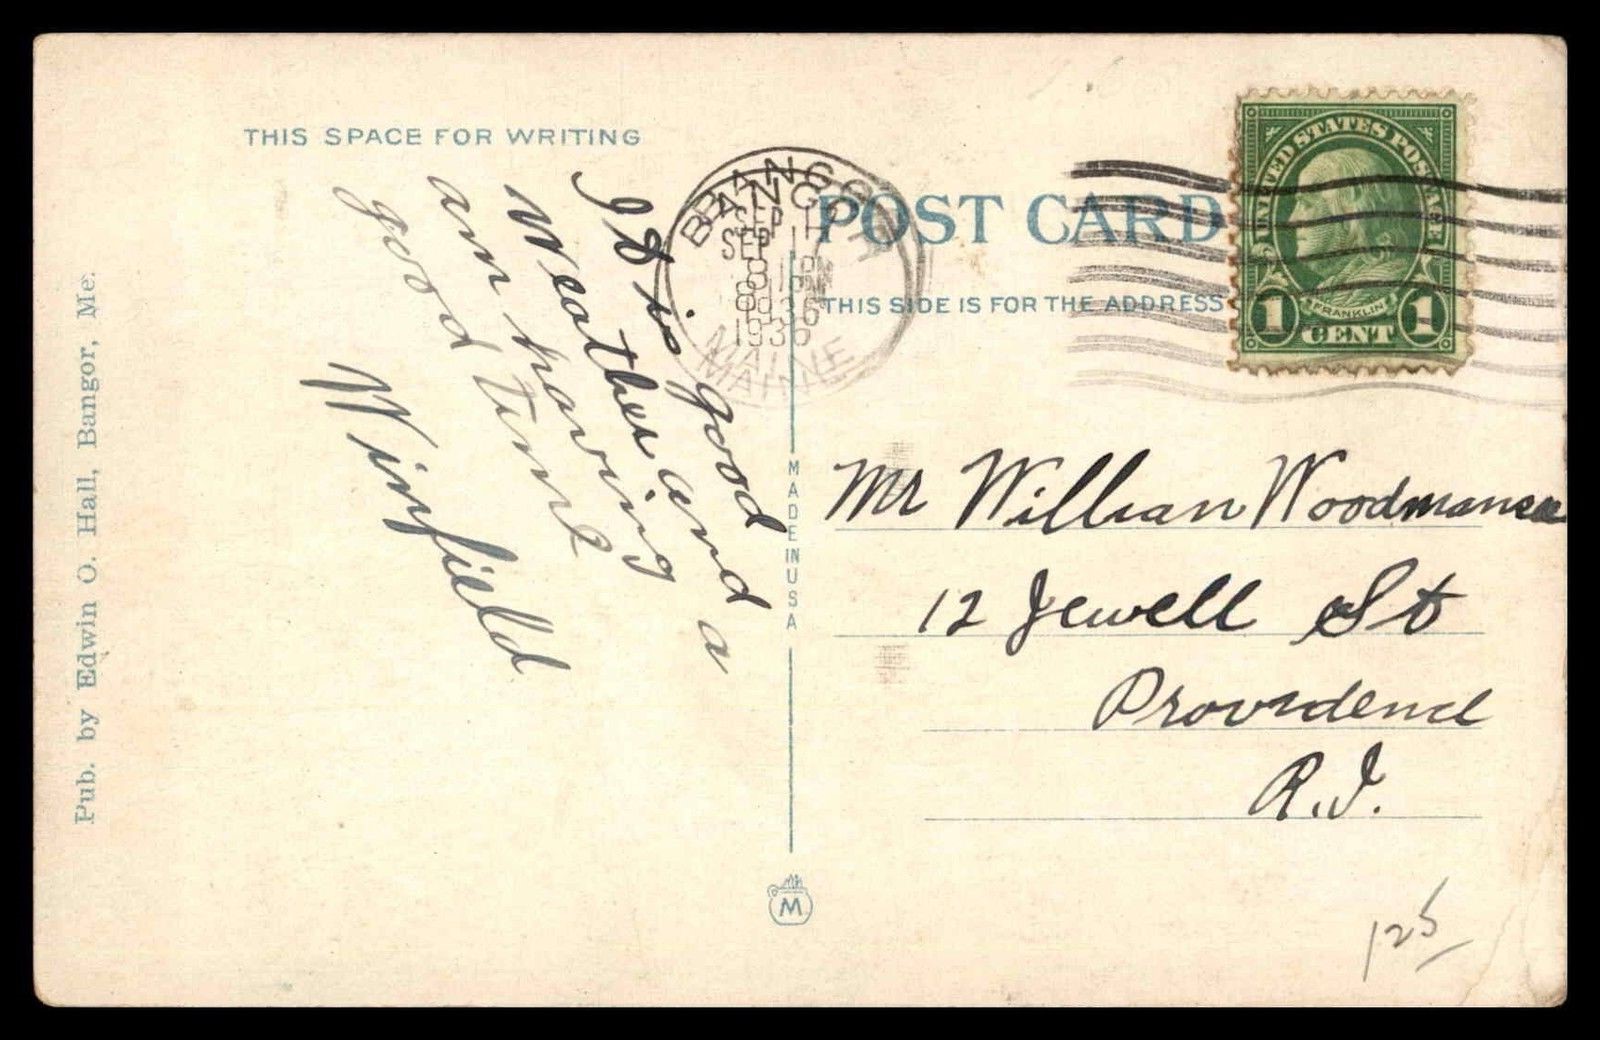 THIS SPACE FOR WRITING
It is good
Weather and a
am having
good time
Winfield
Pub. by Edwin O. Hall, Bangor, Me.
BANGOR
SEP 11
8 PM
1936
MAINE
POST CARD
THIS SIDE IS FOR THE ADDRESS
UNITED STATES POSTAGE
FRANKLIN
1 CENT 1
MADE IN USA
Mr Willian Woodmansee
12 Jewell St
Providence
R.I.
M
125